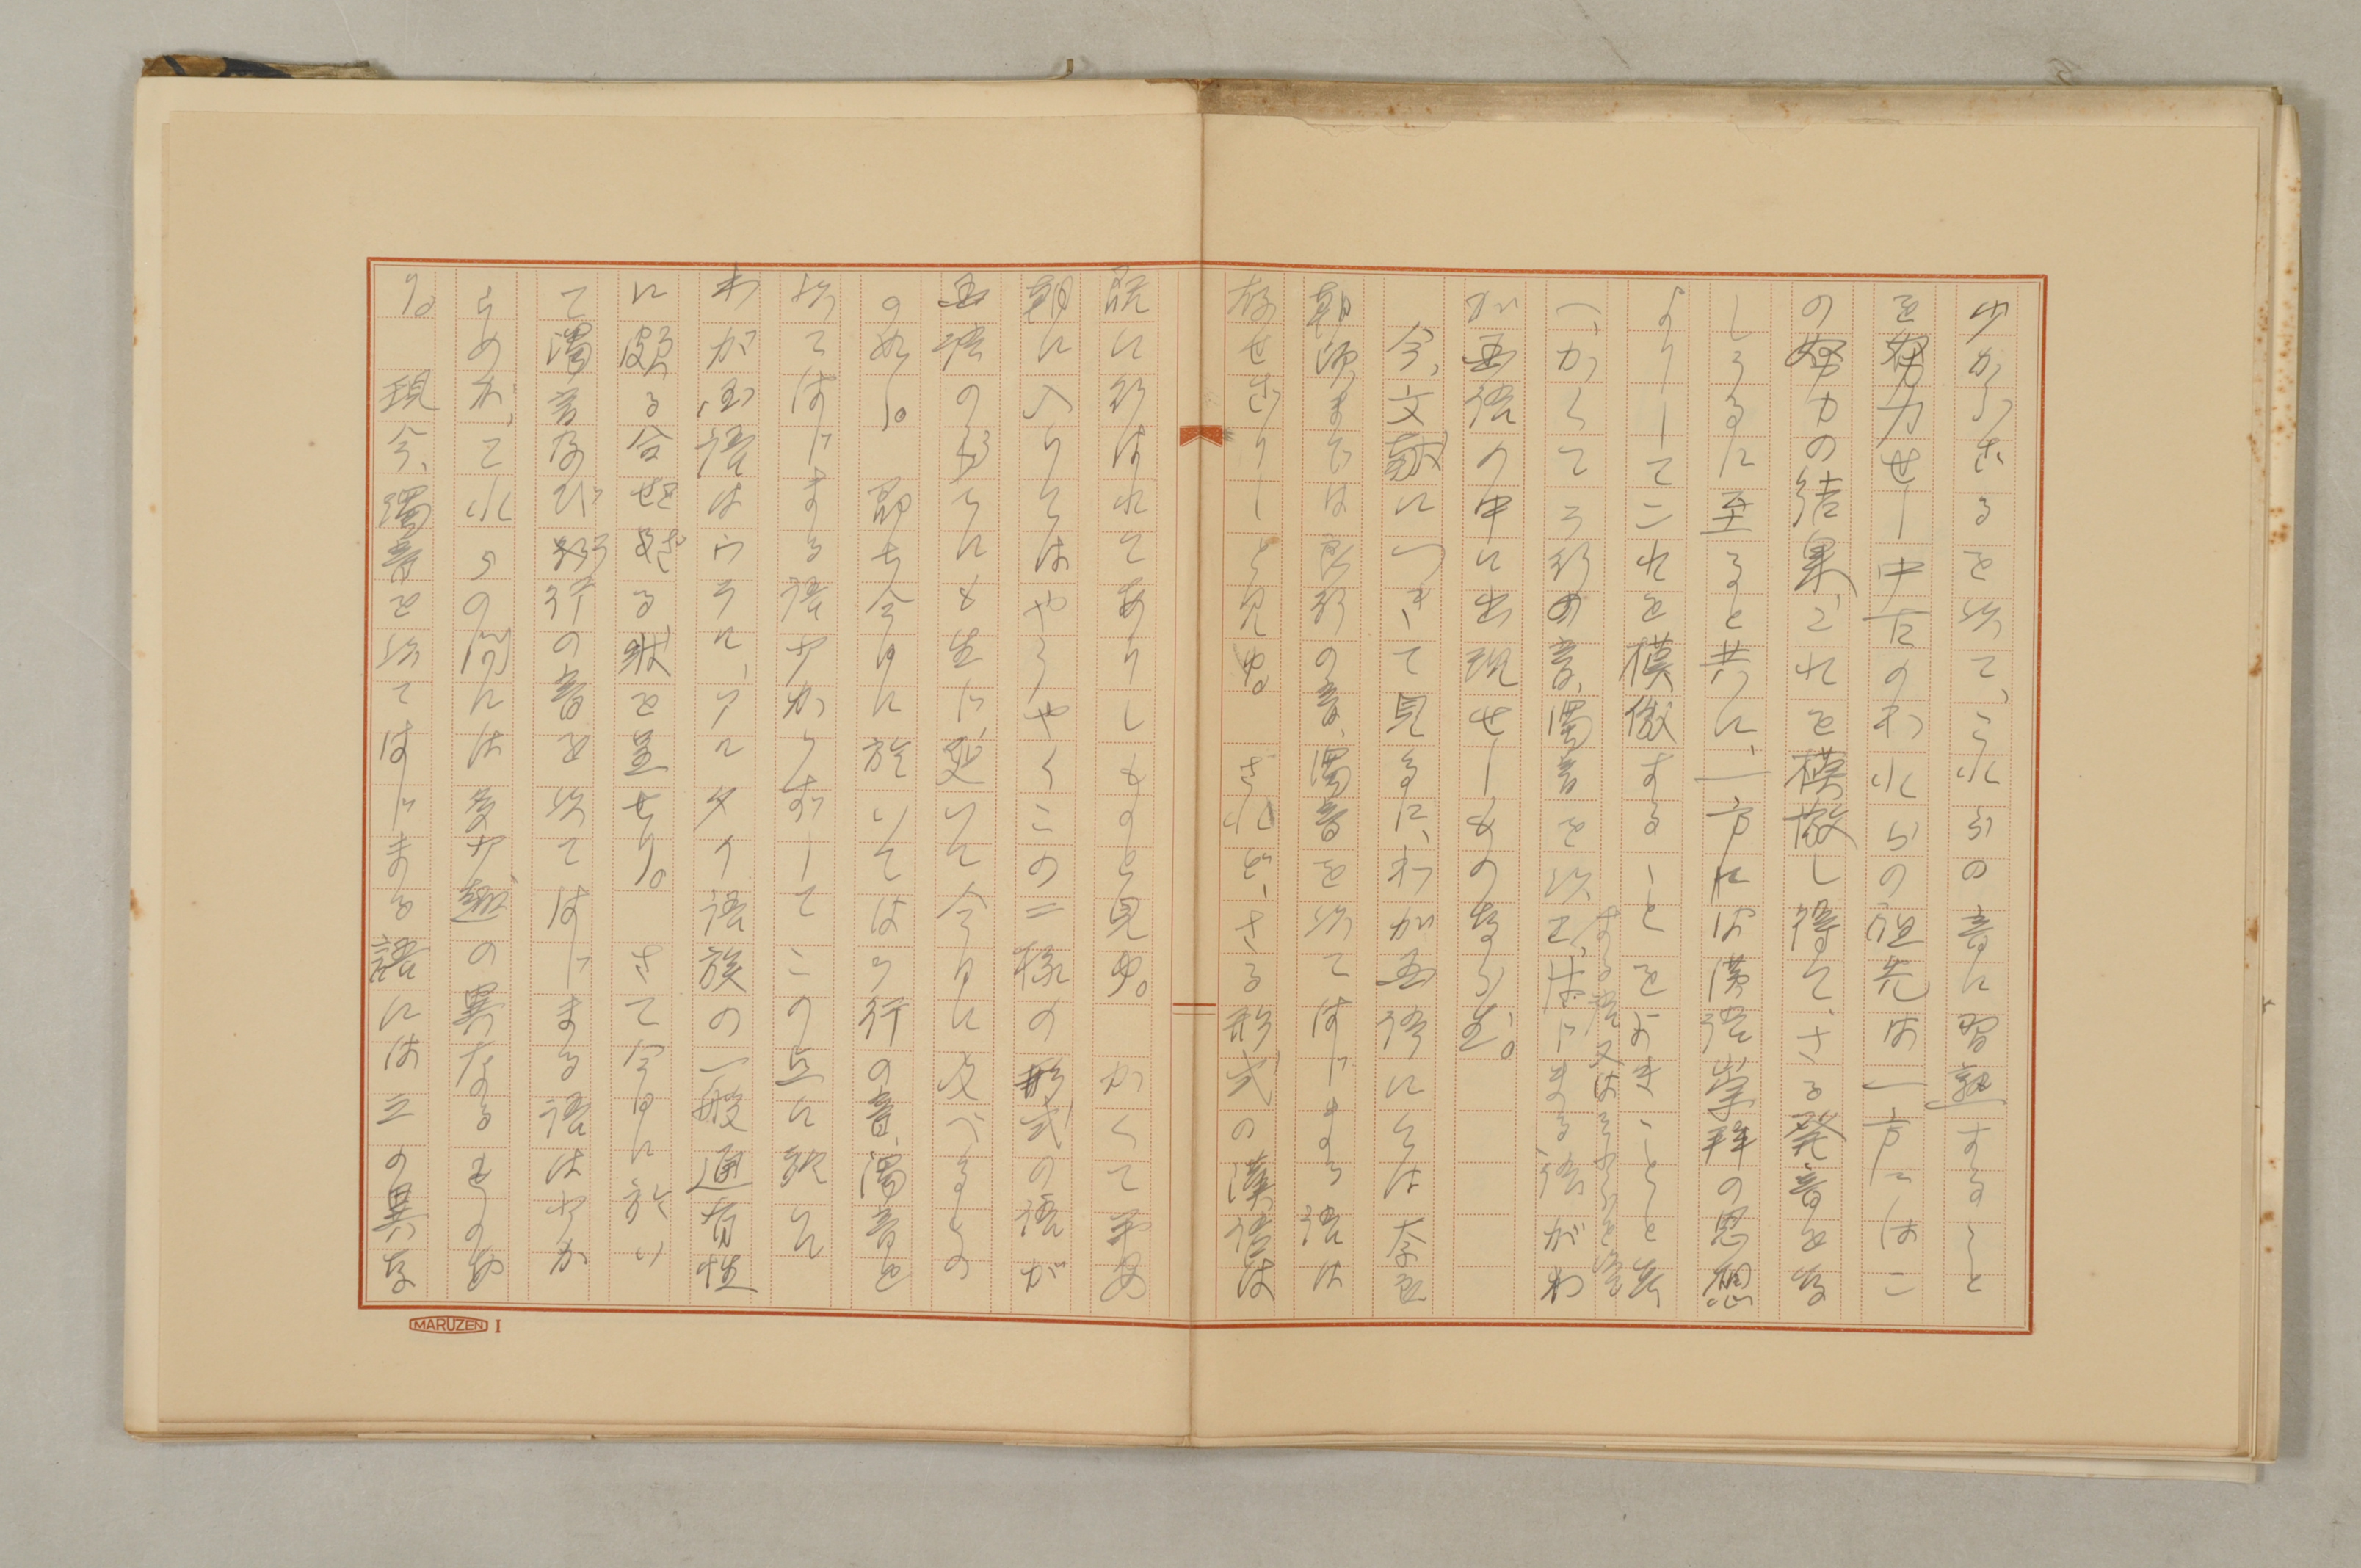 少からざるを以て、これらの音に習熟すること
を努力せし中古のわれらの祖先は一方にはこ
の努力の結果、これを模倣し得て、さる発音をな
しうるに至ると共に、一方には漢語崇拝の思想
よりしてこれを模倣することをよきことと考
へ、かくてラ行の音、濁音を以てはじまる語がわ
が国語の中に出現せしものならむ。
今、文献につきて見るに、わが国語にては奈良
朝頃まではラ行の音、濁音を以てはじまる語は
存せざりしと見ゆ。されど、さる形式の漢語は
既に行はれてありしものと見ゆ。かくて平安
朝に入りてはやうやくこの二様の語が
国語の形にても生じ、延いて今日に及べるもの
の如し。即ち今日に於いてはラ行の音、濁音を
以てはじまる語少からずしてこの点に就て
わが国語はウラル、アルタイ語族の一般通有性
に頗る合せざる状を呈せり。さて今日に於い
て濁音及びラ行の音を以てはじまる語は少か
らめど、それらの間には多少趣の異なるものあ
り。現今、濁音を以てはじまる語には三の異な
MARUZEN I